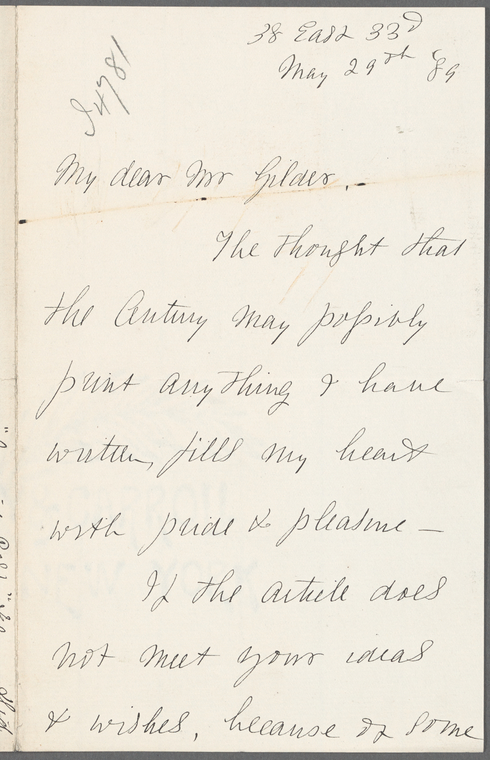 38 East 33d
May 29th '89
I 4781
My dear Mr Gilder.
The thought that
the Century may possibly
print anything I have
written, fills my heart
with pride & pleasure —
If the article does
not meet your ideas
& wishes, because of some